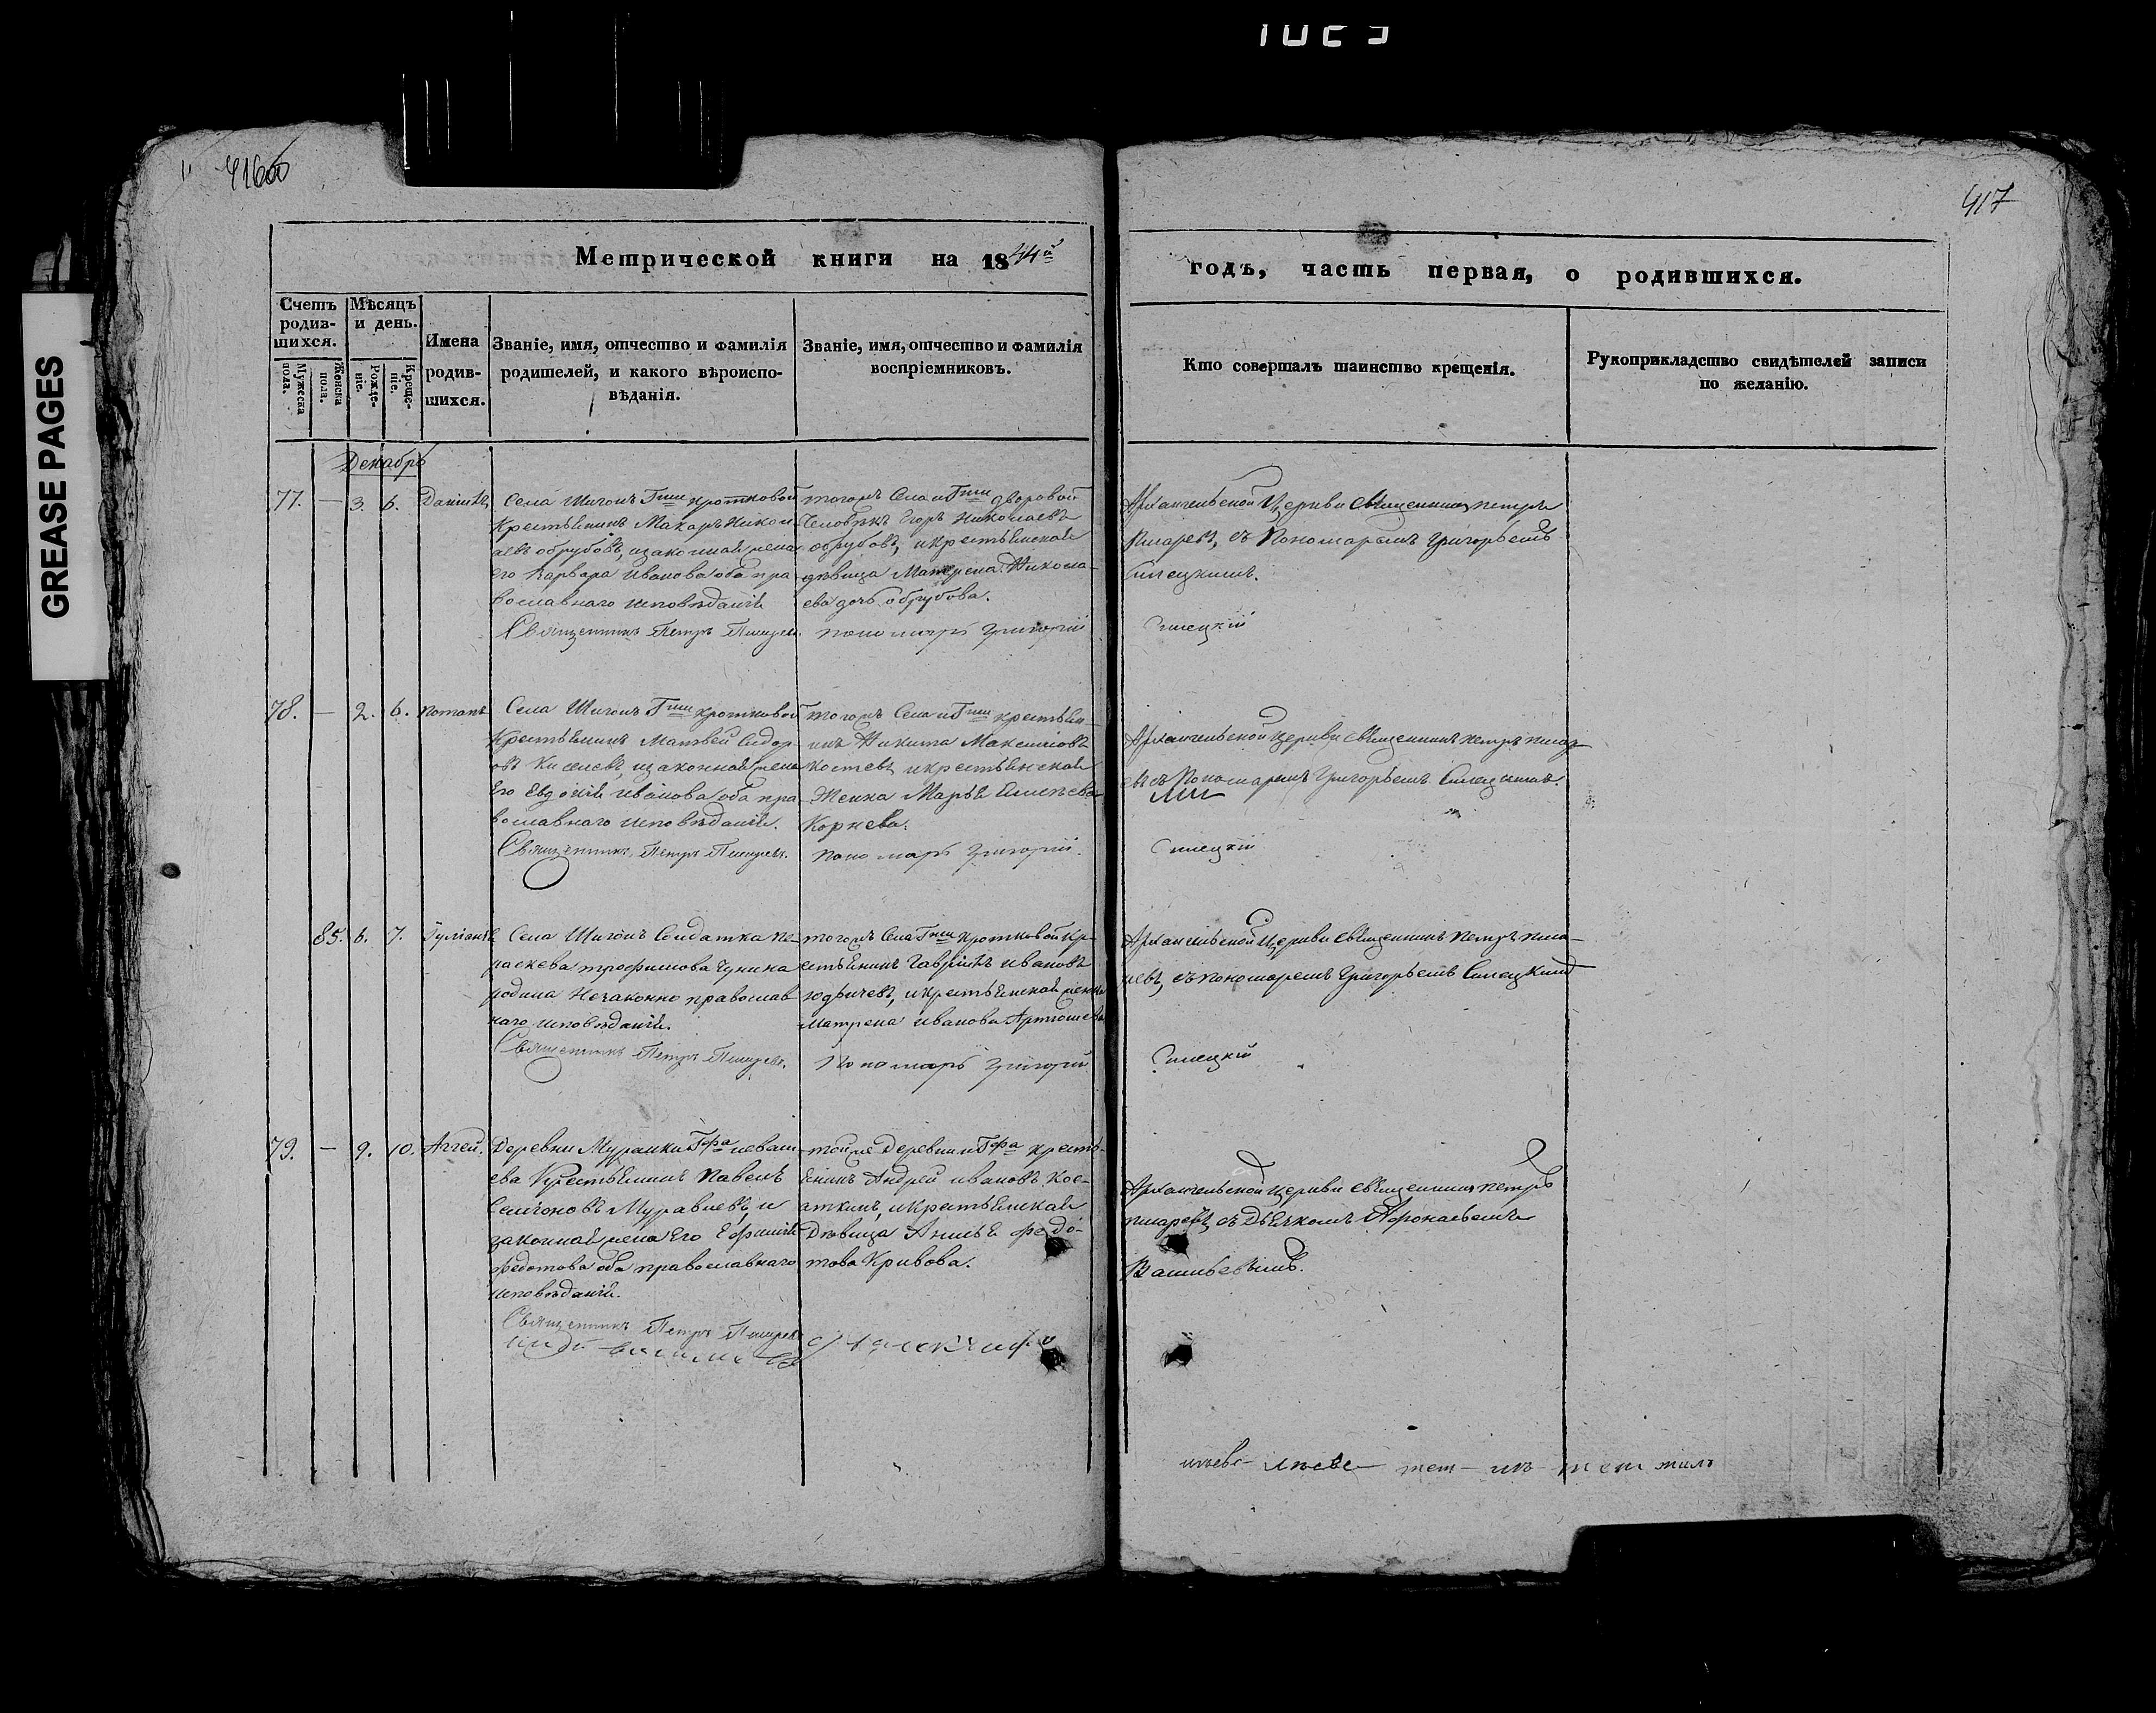 GREASE PAGES
417
Метрической книги на 1844й
годъ, часть первая, о родившихся.
Счетъ родившихся.
Мужеска пола.
Женска пола.
Мѣсяцъ и день.
Рождение.
Крещение.
Имена родившихся.
Званіе, имя, отчество и фамилія родителей, и какого вѣроисповѣданія.
Званіе, имя, отчество и фамилія воспріемниковъ.
Кто совершалъ таинство крещенія.
Рукоприкладство свидѣтелей записи по желанію.
Декабрь
77. — 3. 6. Даніилъ
Села Шигонъ Гжи Кротковой
Крестьянинъ Макаръ Никол
аевъ обрубовъ, и законная жена
его Варвара Иванова оба пра
вославнаго исповѣданія
Священникъ Петръ Писарев
тогожъ Села и Гжи дворовой
Человѣкъ Егоръ Николаевъ
обрубовъ, и крестьянская
дѣвица Матрена Никола
ева дочь обрубова.
пономарь Григорий
Архангельской Церкви Священникъ петръ
Писаревъ, съ Пономаремъ Григорьемъ
78. — 2. 6. Потапъ
Села Шигонъ Гжи Кротковой
Крестьянинъ Матвей Сидор
овъ Киселевъ, и законная жена
Его Евдокія Иванова оба пра
вославнаго исповѣданія.
Священникъ Петръ Писаревъ.
тогожъ Села и Гжи крестьян
инъ Никита Максимовъ
Костевъ, и крестьянская
Женка Марья
Корнева.
пономарь Григорий
Архангельской Церкви Священникъ петръ писар
евъ съ Пономаремъ Григорьемъ
85. 6. 7. Іуліанія
Села Шигонъ Солдатка Па
раскева трофимова
родила Незаконно православ
наго исповѣданія.
Священникъ Петръ Писаревъ.
тогожъ Села Гжи Кротковой Кр
естьянинъ Гавріилъ Ивановъ
и крестьянская женка
Матрена Иванова Артюшева
Пономарь Григорий
Архангельской Церкви Священникъ Петръ писа
ревъ, съ пономаремъ Григорьемъ
79. — 9. 10. Аггей.
Деревни Муранки Грфа
ева Крестьянинъ Павелъ
Семионовъ Муравлевъ, и
законная жена Его Ефимія
Федотова оба православнаго
исповѣданія.
Священникъ Петръ Писарев
тойже деревни и Грфа кресть
янинъ Андрей Ивановъ Кос
аткинъ, и крестьянская
Дѣвица Анисья федо
това Кривова.
Архангельской Церкви Священникъ петръ
писаревъ, съ Дьячкомъ Афонасьемъ
Васильевымъ.